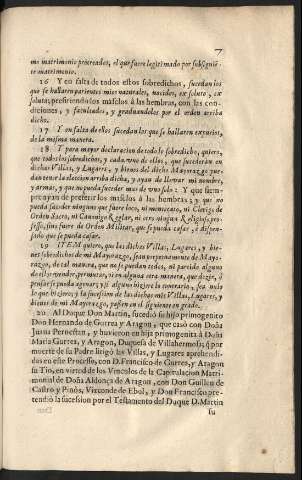 7
mo matrimonio procreados, el que fuere legitimado por subsiguiē-
te matrimonio.
16 Y en falta de todos estos sobredichos, sucedan los
que se hallaren parientes mios naturales, nacidos, ex soluto, ex
soluta, prefiriendo los masclos à las hembras, con las con-
diciones, y facultades, y graduandolos por el orden arriba
dicho.
17 Y en falta de ellos sucedan los que se hallaren expurios,
de la misma manera.
18 Y para mayor declaracion de todo lo sobredicho, quiero,
que todos los sobredichos, y cada uno de ellos, que sucederàn en
dichas Villas, y Lugares, y bienes del dicho Mayorazgo pue-
dan tener la eleccion arriba dicha, y ayan de llevar mi nombre,
y armas, y que no pueda suceder mas de uno solo: Y que siem-
pre ayan de preferir los masclos à las hembras; y que no
pueda suceder ninguno que fuere loco, ni mentecato, ni Clerigo de
Orden Sacro, ni Canonigo Reglar, ni otro ningun Religioso pro-
fesso, sino fuere de Orden Militar, que se pueda casar, ò dispen-
sado que se pueda casar.
19 ITEM quiero, que las dichas Villas, Lugares, y bie-
nes sobredichos de mi Mayorazgo, sean perpetuamente de Mayo-
razgo, de tal manera, que no se puedan todos, ni partida alguna
de ellos vender, permutar, ni en alguna otra manera, que dezir, ò
pensar se pueda agenar; y si alguno hiziere lo contrario, sea nulo
lo que hiziere; y la sucession de las dichas mis Villas, Lugares, y
bienes de mi Mayorazgo, passen en el siguiente en grado.
20 Al Duque Don Martin, sucediò su hijo primogenito
Don Hernando de Gurrea y Aragon, que casò con Doña
Juana Perenstan, y huvieron en hija primogenita à Doña
Maria Gurrea, y Aragon, Duquesa de Villahermosa; ò por
muerte de su Padre litigò las Villas, y Lugares aprehendi-
dos en este Processo, con D. Francisco de Gurrea, y Aragon
su Tio, en virtud de los Vinculos de la Capitulacion Matri-
monial de Doña Aldonça de Aragon, con Don Guillen de
Castro y Pinòs, Vizconde de Ebol, y Don Francisco pre-
tendiò la sucession por el Testamento del Duque D. Martin
su